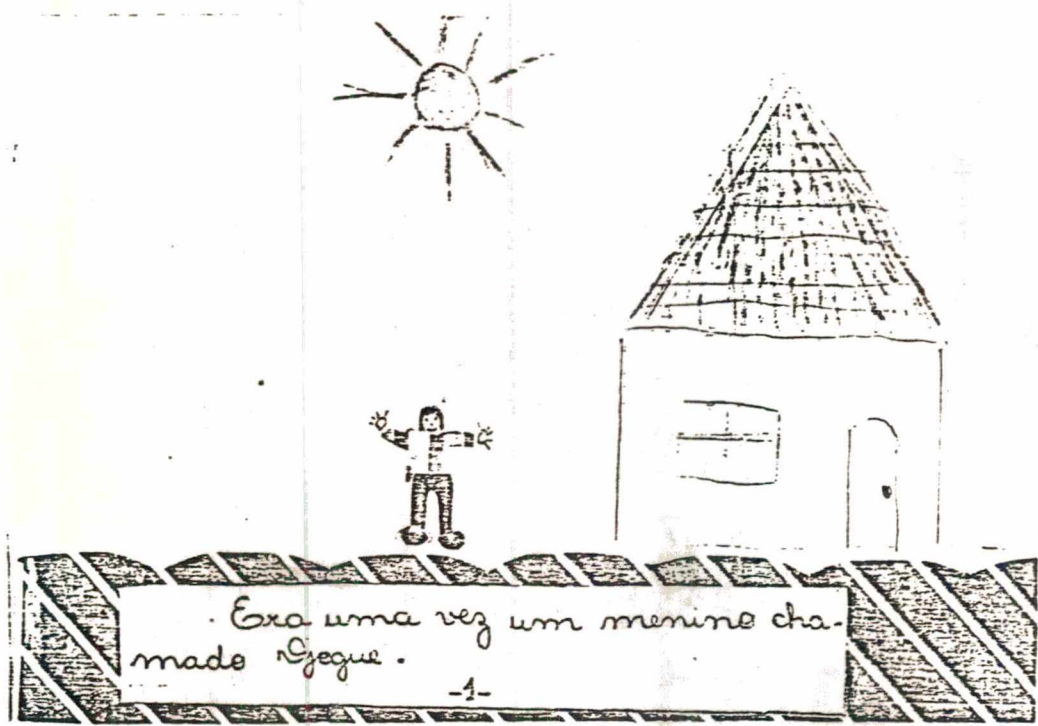 Era uma vez um menino cha-
mado Gegue.
-1-